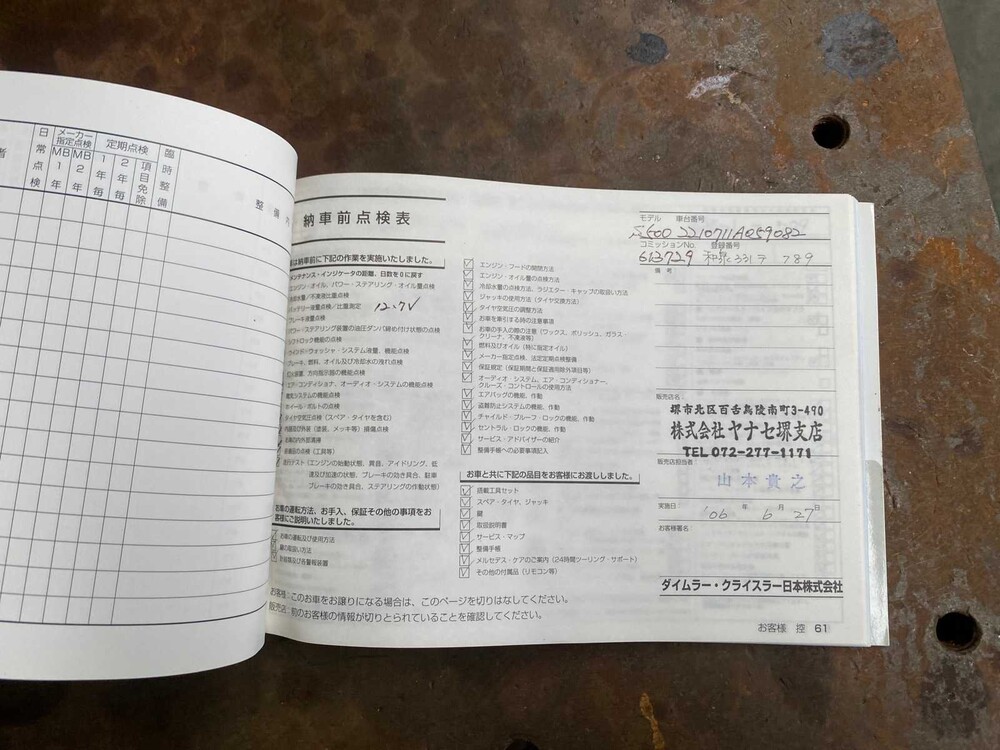 者
日常点検
メーカー指定点検
MB1年
MB2年
定期点検
1年毎
2年毎
項目免除
臨時整備
整備内
納車前点検表
は納車前に下記の作業を実施いたしました。
メンテナンス・インジケータの距離、日数を0に戻す
エンジン・オイル、パワー・ステアリング・オイル量点検
冷却水量/不凍液比重点検
バッテリー液量点検/比重測定 12.7V
ブレーキ液量点検
パワー・ステアリング装置の油圧ダンパ締め付け状態の点検
機能の点検
ウインドウ・ウォッシャ・システム液量、機能点検
ブレーキ、燃料、オイル及び冷却水の洩れ点検
方向指示器の機能点検
エア・コンディショナ、オーディオ・システムの機能点検
電気システムの機能点検
ホイール・ボルトの点検
タイヤ空気圧点検(スペア・タイヤを含む)
内装及び外装(塗装、メッキ等)損傷点検
お車の内外部清掃
装備品の点検(工具等)
走行テスト(エンジンの始動状態、異音、アイドリング、低
速及び加速の状態、ブレーキの効き具合、駐車
ブレーキの効き具合、ステアリングの作動状態)
お車の運転方法、お手入、保証その他の事項をお
客様にご説明いたしました。
お車の運転及び使用方法
鍵の取扱い方法
計器類及び各警報装置
エンジン・フードの開閉方法
エンジン・オイル量の点検方法
冷却水量の点検方法、ラジエター・キャップの取扱い方法
ジャッキの使用方法(タイヤ交換方法)
タイヤ空気圧の調整方法
お車を牽引する時の注意事項
お車の手入の際の注意(ワックス、ポリッシュ、ガラス・
クリーナ、不凍液等)
燃料及びオイル(特に指定オイル)
メーカー指定点検、法定定期点検整備
保証規定(保証期間と保証適用除外項目等)
オーディオ・システム、エア・コンディショナー、
クルーズ・コントロールの使用方法
エアバッグの機能、作動
盗難防止システムの機能、作動
チャイルド・プルーフ・ロックの機能、作動
セントラル・ロックの機能、作動
サービス・アドバイザーの紹介
整備手帳への必要事項記入
お車と共に下記の品目をお客様にお渡ししました。
搭載工具セット
スペア・タイヤ、ジャッキ
鍵
取扱説明書
サービス・マップ
整備手帳
メルセデス・ケアのご案内(24時間ツーリング・サポート)
その他の付属品(リモコン等)
モデル 車台番号
S500 2210711A059082
コミッションNo. 登録番号
613729 和泉 331 789
備考
販売店名:
堺市北区百舌鳥陵南町3-490
株式会社ヤナセ堺支店
TEL 072-277-1171
販売店担当者:
山本貴之
実施日: '06 年 6 月 27 日
お客様署名:
ダイムラー・クライスラー日本株式会社
お客様:このお車をお譲りになる場合は、このページを切りはなしてください。
販売店:前のお客様の情報が切りとられていることを確認してください。
お客様 控 61